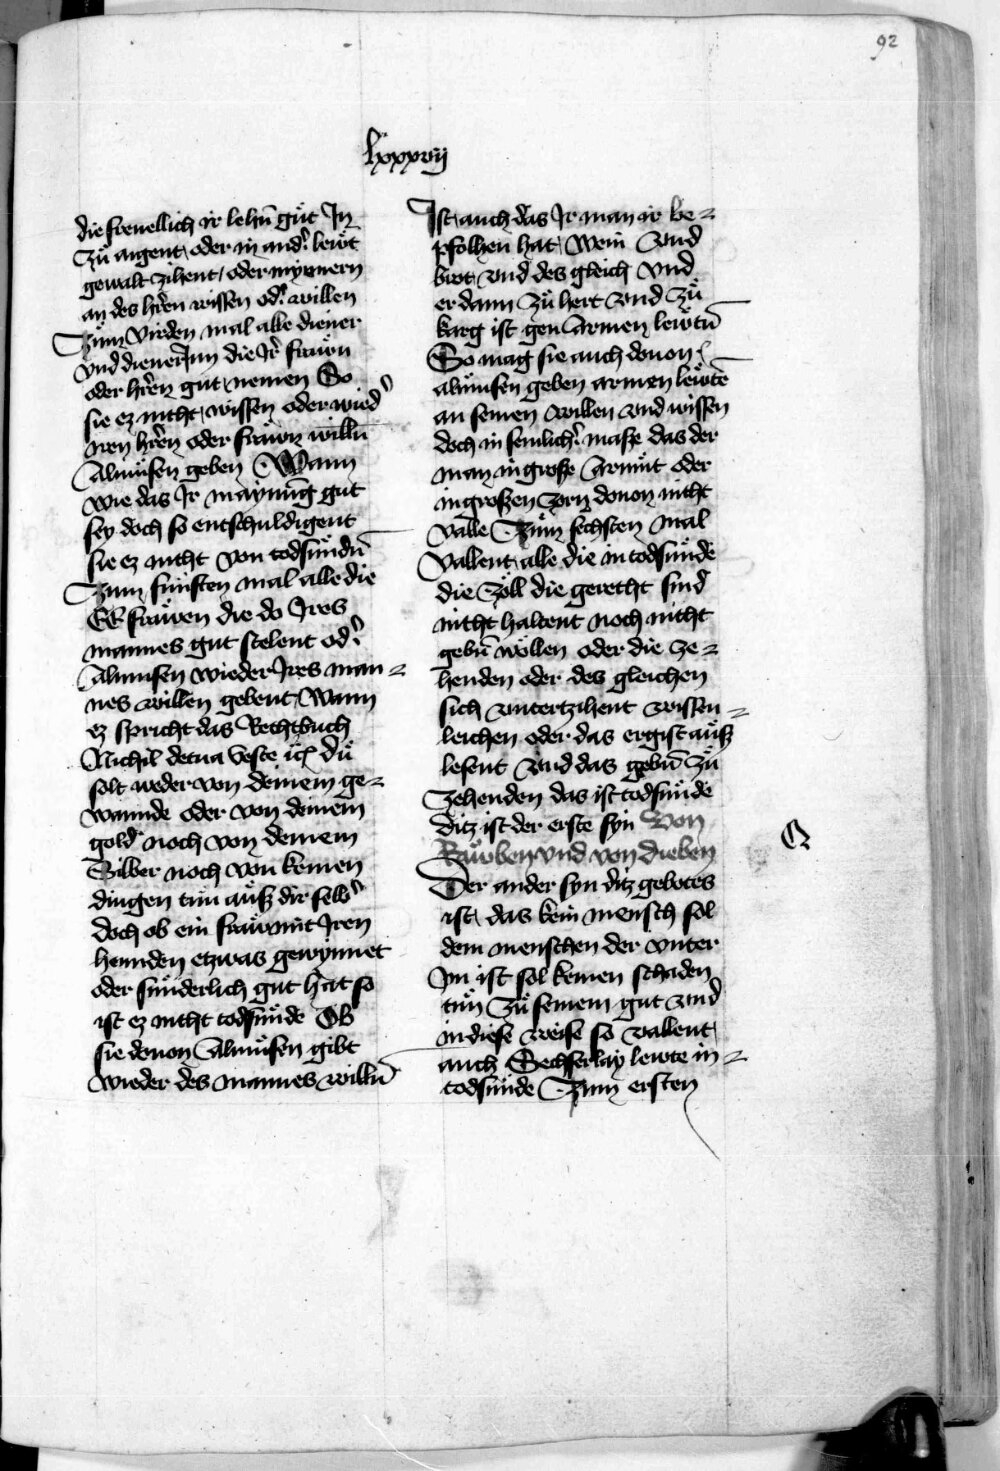 92
lxxxvij
die freuellich ir lehn̄ gůt In
Zů aigent oder in and̾ lewt
gewalt zihent / oder mynnern
an des hr̄en wissen od̾ willen
Zům Virden mal alle diener
vnd dienerInn die Ir̄ frawn
oder hr̄en gut nemen So
sie ez nicht wissen oder wied̾
iren hr̄en oder frawn willn̄
Almůsen geben Wann
wie das Ir maynūg gut
sey doch so entschuldigent
sie ez nicht von todsündn̄
Zum fünften mal alle die
EE frawen die do Ires
mannes gut stelent od̾
Almusen wieder Ires man-
nes willen gebent Wann
ez spricht das Rechtbuch
Nichil de tua veste ic̄ Du
solt weder von deinem ge-
wannde oder von deinem
gold noch von deinem
Silber noch von keinen
dingen tun auſz dir selb̾
doch ob ein fraw mit Iren
hennden etzwas gewynnet
oder sünderlich gut hat so
ist ez nicht todsünde Ob
sie douon Almůsen gibt
wieder des mannes willn̄
Ist auch das Ir man ir be-
pfolhen hat Wein Vnd
brot vnd des gleich Vnd
er dann zů hert vnd zů
karg ist gen Armen lewtn̄
So mag sie auch douon
almůsen geben armen lewtē
an seinen willen vnd wissen
doch in semlich̾ masze das der
man in grosze Armůt oder
in groszen zorn douon nicht
Valle Zům sechsten mal
Vallent alle die in todsünde
die Zöll die gerecht sind
nicht haltent noch nicht
gebn̄ wöllen oder die ze-
henden oder des gleichen
sich vntertzihent wissen-
leichen oder das ergist auſz
lesent Vnd das gebn̄ zů
Zehenden das ist todsünde
Ditz ist der erste syn Von
Rawben vnd von dieben
Der ander syn ditz gebotes
ist das kein mensch sol
dem menschen der vnter
Im ist sol keinen schaden
tůn Zů seinem gut vnd
in diese weise so vallent
auch Sechserlay lewte in-
todsünde Zum ersten